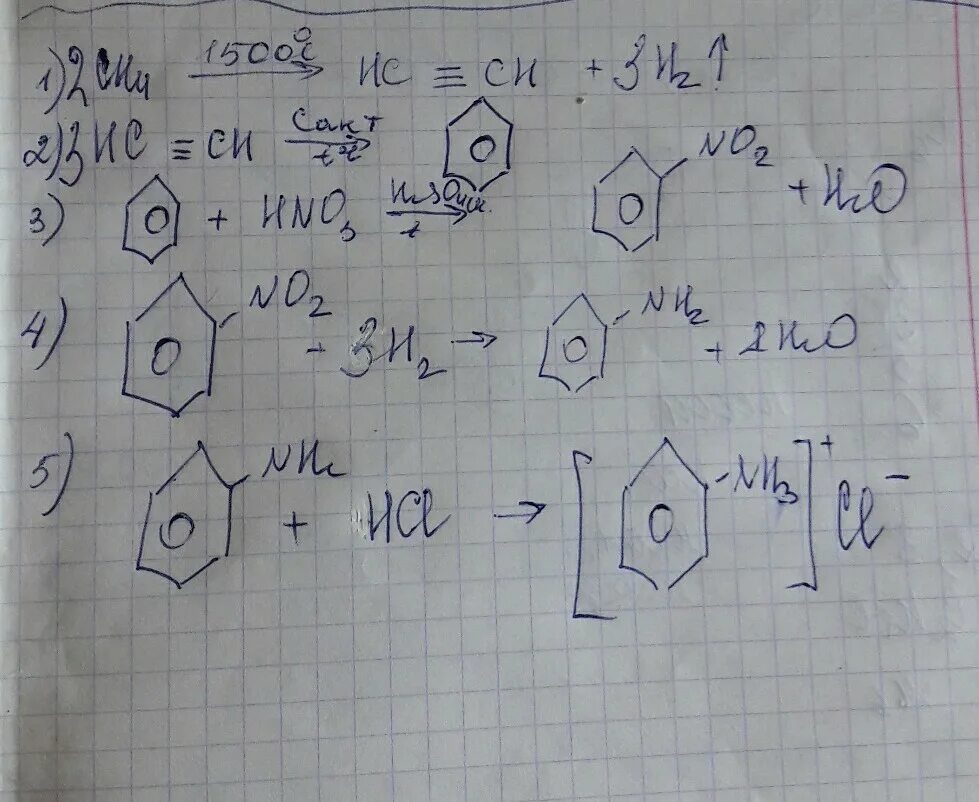 1) 2CH4 1500°C → HC ≡ CH + 3H2↑
2) 3HC ≡ CH Cакт → t°C
3) + HNO3 H2SO4 к. → t NO2 + H2O
4) NO2 + 3H2 → NH2 + 2H2O
5) NH2 + HCl → [ -NH3 ]+ Cl−